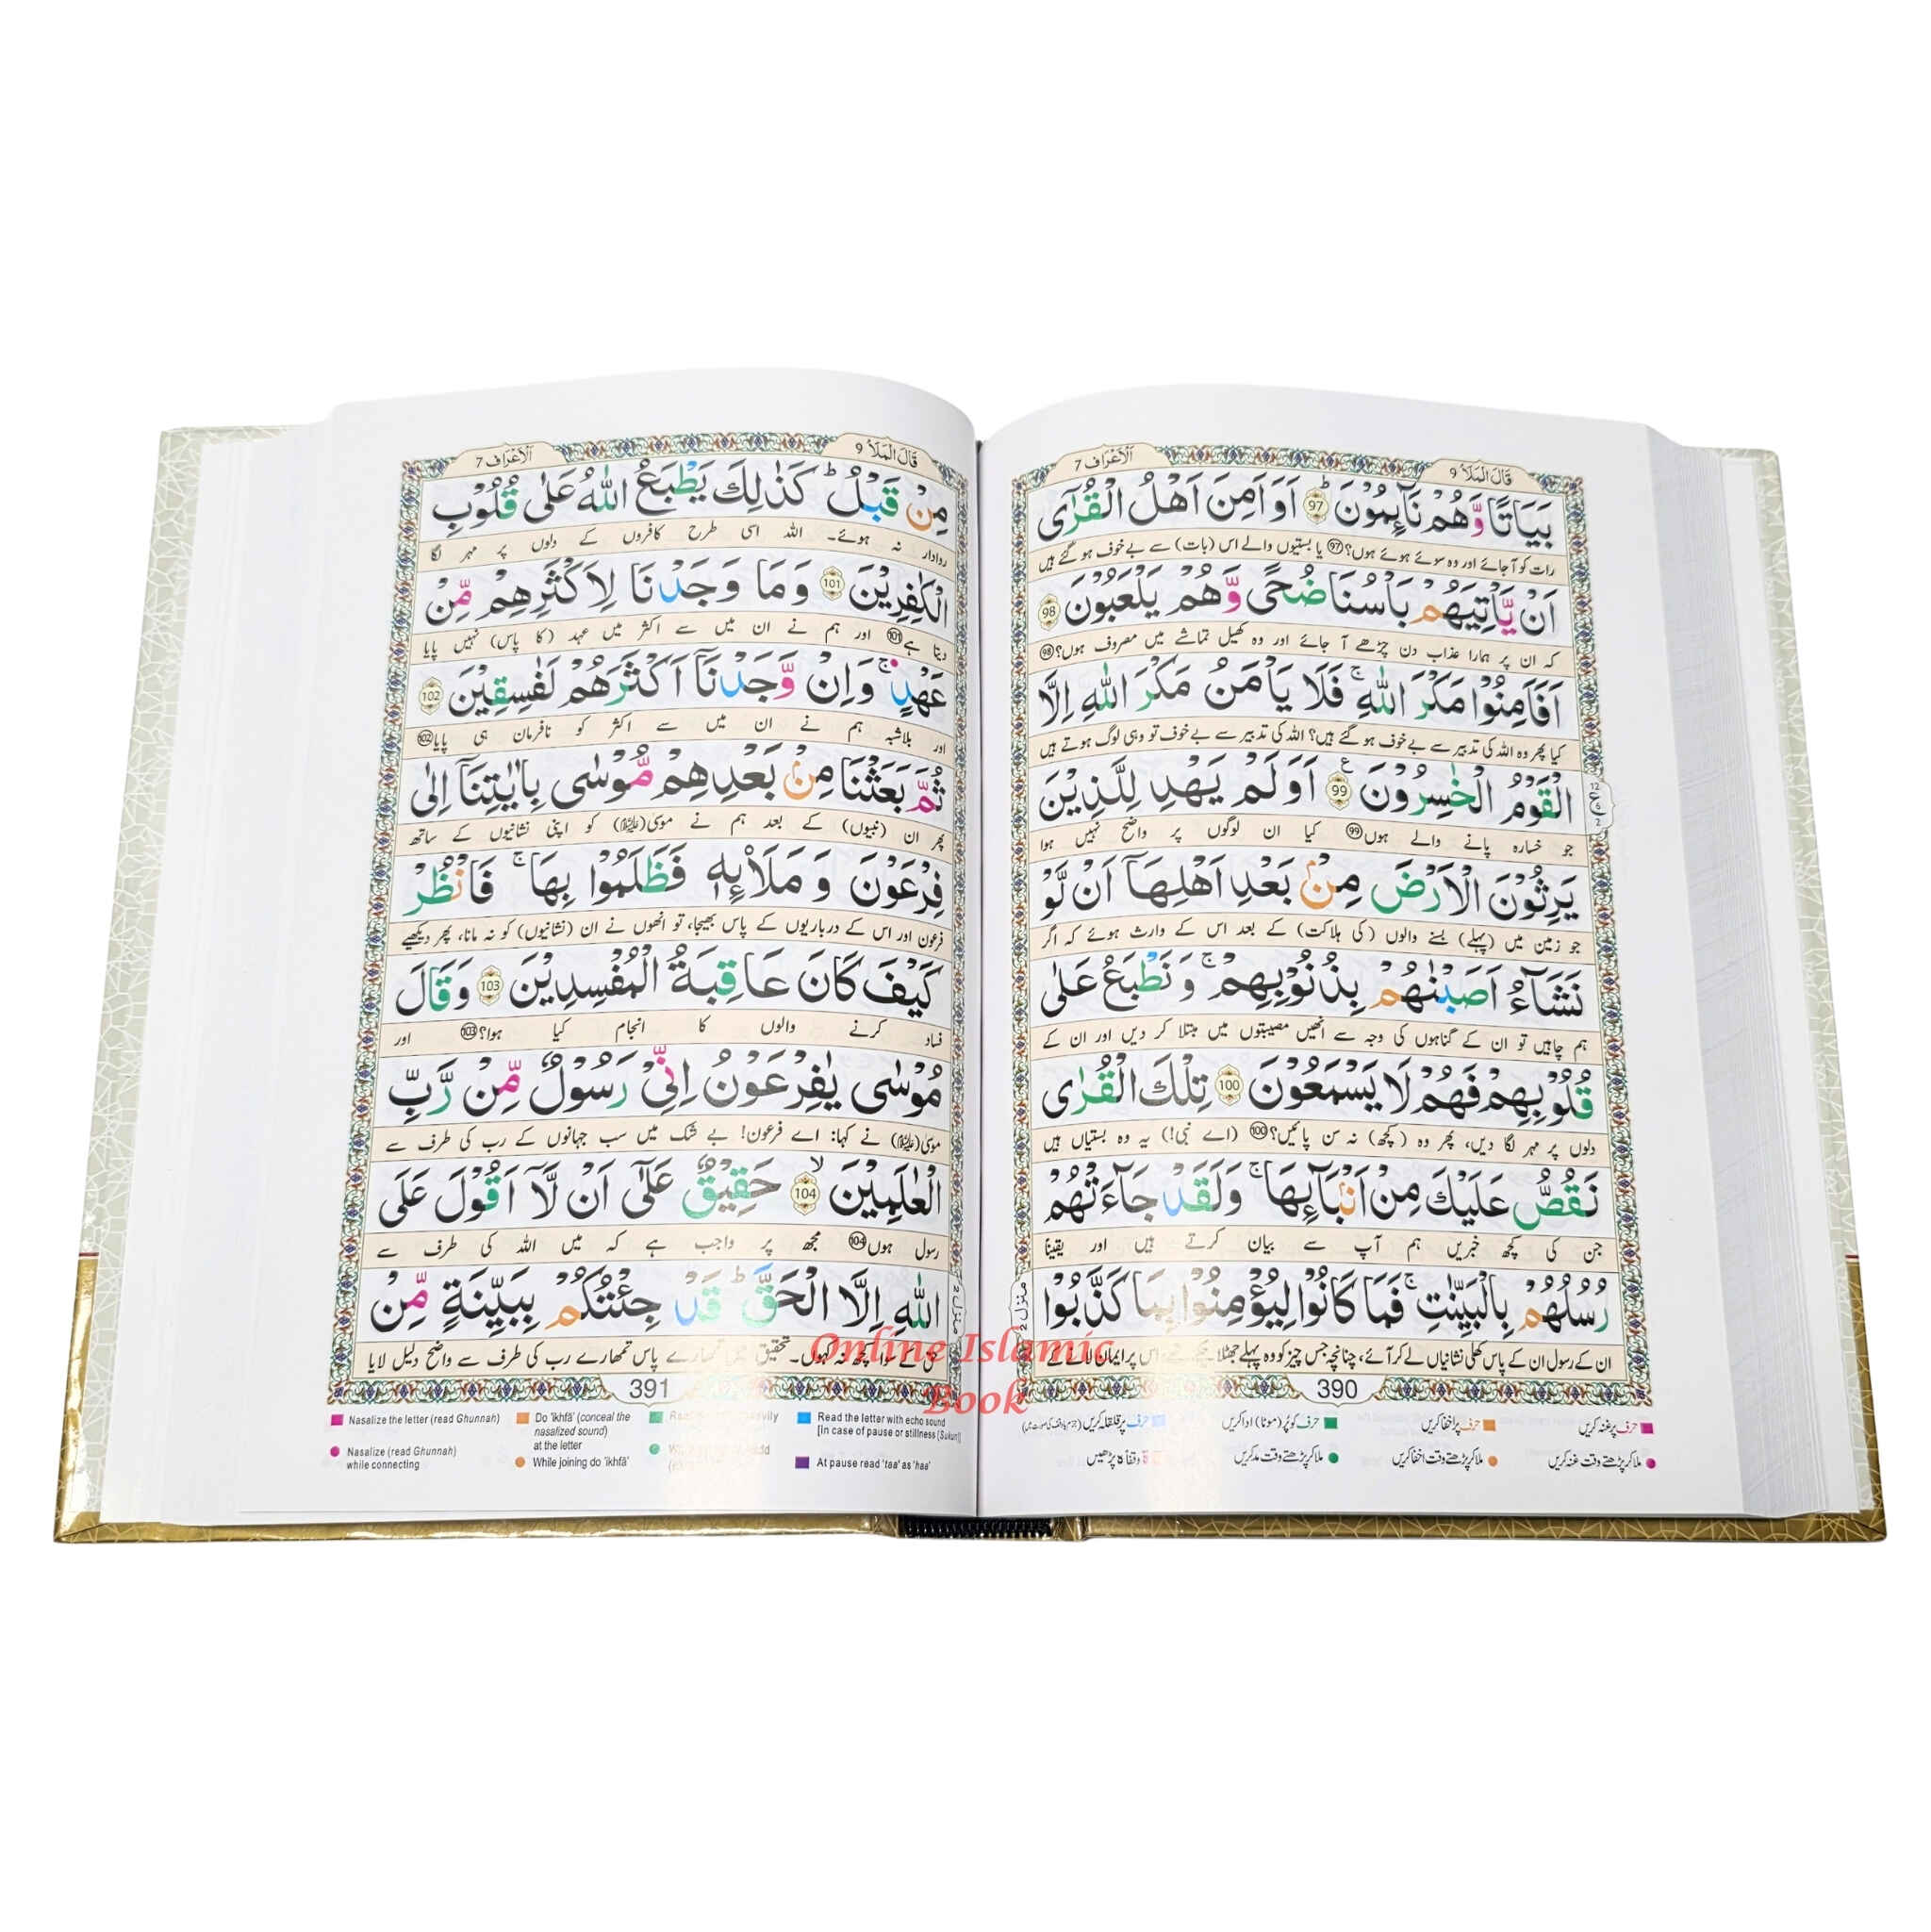 قَالَ الْمَلَاُ 9
اَلْاَعْرَاف 7
بَيَاتًا وَّهُمْ نَآئِمُوْنَ ؕ 97 اَوَ اَمِنَ اَهْلُ الْقُرٰٓى
رات کو آجائے اور وہ سوئے ہوئے ہوں؟ 97 یا بستیوں والے اس (بات) سے بے خوف ہو گئے ہیں
اَنْ يَّاْتِيَهُمْ بَاْسُنَا ضُحًى وَّهُمْ يَلْعَبُوْنَ 98
کہ ان پر ہمارا عذاب دن چڑھے آ جائے اور وہ کھیل تماشے میں مصروف ہوں؟ 98
اَفَاَمِنُوْا مَكْرَ اللّٰهِ ۚ فَلَا يَاْمَنُ مَكْرَ اللّٰهِ اِلَّا
کیا پھر وہ اللہ کی تدبیر سے بے خوف ہو گئے ہیں؟ اللہ کی تدبیر سے بے خوف تو وہی لوگ ہوتے ہیں
الْقَوْمُ الْخٰسِرُوْنَ 99 ع اَوَ لَمْ يَهْدِ لِلَّذِيْنَ
12 ع 6 2
جو خسارہ پانے والے ہوں 99 کیا ان لوگوں پر واضح نہیں ہوا
يَرِثُوْنَ الْاَرْضَ مِنْۢ بَعْدِ اَهْلِهَاۤ اَنْ لَّوْ
جو زمین میں (پہلے) بسنے والوں (کی ہلاکت) کے بعد اس کے وارث ہوئے کہ اگر
نَشَآءُ اَصَبْنٰهُمْ بِذُنُوْبِهِمْ ۚ وَ نَطْبَعُ عَلٰى
ہم چاہیں تو ان کے گناہوں کی وجہ سے انھیں مصیبتوں میں مبتلا کر دیں اور ان کے
قُلُوْبِهِمْ فَهُمْ لَا يَسْمَعُوْنَ 100 تِلْكَ الْقُرٰى
دلوں پر مہر لگا دیں، پھر وہ (کچھ) نہ سن پائیں؟ 100 (اے نبی!) یہ وہ بستیاں ہیں
نَقُصُّ عَلَيْكَ مِنْ اَنْۢبَآئِهَا ۚ وَلَقَدْ جَآءَتْهُمْ
جن کی کچھ خبریں ہم آپ سے بیان کرتے ہیں اور یقیناً
رُسُلُهُمْ بِالْبَيِّنٰتِ ۚ فَمَا كَانُوْا لِيُؤْمِنُوْا بِمَا كَذَّبُوْا
منزل 2
ان کے رسول ان کے پاس کھلی نشانیاں لے کر آئے، چنانچہ جس چیز کو وہ پہلے جھٹلا اس پر ایمان لانے کے
390
حرف پر غنہ کریں
حرف پر اخفا کریں
حرف کو پُر (موٹا) ادا کریں
حرف پر قلقلہ کریں
ملا کر پڑھتے وقت غنہ کریں
ملا کر پڑھتے وقت اخفا کریں
ملا کر پڑھتے وقت مد کریں
وقفاً ہ پڑھیں
قَالَ الْمَلَاُ 9
اَلْاَعْرَاف 7
مِنْ قَبْلُ ؕ كَذٰلِكَ يَطْبَعُ اللّٰهُ عَلٰى قُلُوْبِ
روادار نہ ہوئے۔ اللہ اسی طرح کافروں کے دلوں پر مہر لگا
الْكٰفِرِيْنَ 101 وَ مَا وَجَدْنَا لِاَكْثَرِهِمْ مِّنْ
دیتا ہے 101 اور ہم نے ان میں سے اکثر میں عہد (کا پاس) نہیں پایا
عَهْدٍ ۚ وَاِنْ وَّجَدْنَاۤ اَكْثَرَهُمْ لَفٰسِقِيْنَ 102
اور بلاشبہ ہم نے ان میں سے اکثر کو نافرمان ہی پایا 102
ثُمَّ بَعَثْنَا مِنْۢ بَعْدِهِمْ مُّوْسٰى بِاٰيٰتِنَاۤ اِلٰى
پھر ان (نبیوں) کے بعد ہم نے موسیٰ (علیہ السلام) کو اپنی نشانیوں کے ساتھ
فِرْعَوْنَ وَ مَلَا۟ئِهٖ فَظَلَمُوْا بِهَا ۚ فَانْظُرْ
فرعون اور اس کے درباریوں کے پاس بھیجا، تو انھوں نے ان (نشانیوں) کو نہ مانا، پھر دیکھیے
كَيْفَ كَانَ عَاقِبَةُ الْمُفْسِدِيْنَ 103 وَ قَالَ
فساد کرنے والوں کا انجام کیا ہوا؟ 103 اور
مُوْسٰى يٰفِرْعَوْنُ اِنِّيْ رَسُوْلٌ مِّنْ رَّبِّ
موسیٰ (علیہ السلام) نے کہا: اے فرعون! بے شک میں سب جہانوں کے رب کی طرف سے
الْعٰلَمِيْنَ ۙ 104 حَقِيْقٌ عَلٰٓى اَنْ لَّاۤ اَقُوْلَ عَلَى
رسول ہوں 104 مجھ پر واجب ہے کہ میں اللہ کی طرف سے
اللّٰهِ اِلَّا الْحَقَّ ؕ قَدْ جِئْتُكُمْ بِبَيِّنَةٍ مِّنْ
منزل 2
حق کے سوا کچھ نہ کہوں۔ تحقیق میں تمھارے پاس تمھارے رب کی طرف سے واضح دلیل لایا
391
Nasalize the letter (read Ghunnah)
Do 'ikhfā' (conceal the
nasalized sound)
at the letter
Read the letter with echo sound
[In case of pause or stillness (Sukun)]
Nasalize (read Ghunnah)
while connecting
While joining do 'ikhfā'
At pause read 'taa' as 'haa'
Online Islamic
Book